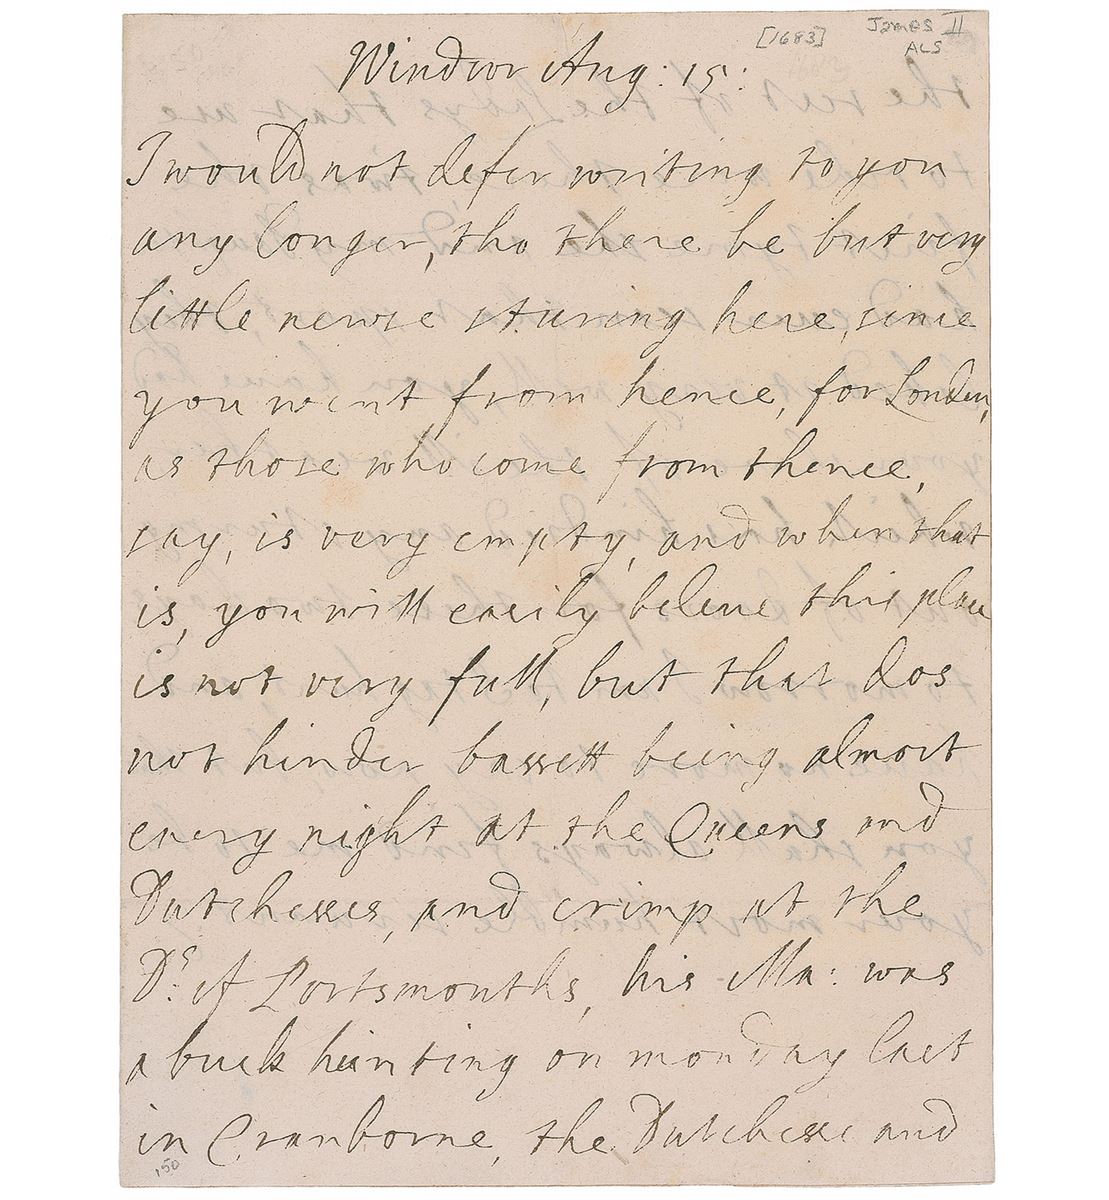 [1683] James II
ALS
Windsor Aug: 15:
I would not defer writing to you
any longer, tho there be but very
little newse sturing here, since
you went from hence, for London,
as those who come from thence,
say, is very empty, and when that
is, you will easily beleue this place
is not very full, but that dos
not hinder bassett being almost
euery night at the Queens and
Dutchesses, and crimp at the
Ds: of Portsmouths, his Ma: was
a buck hunting on monday last
in Cranborne, the Dutchesse and
150